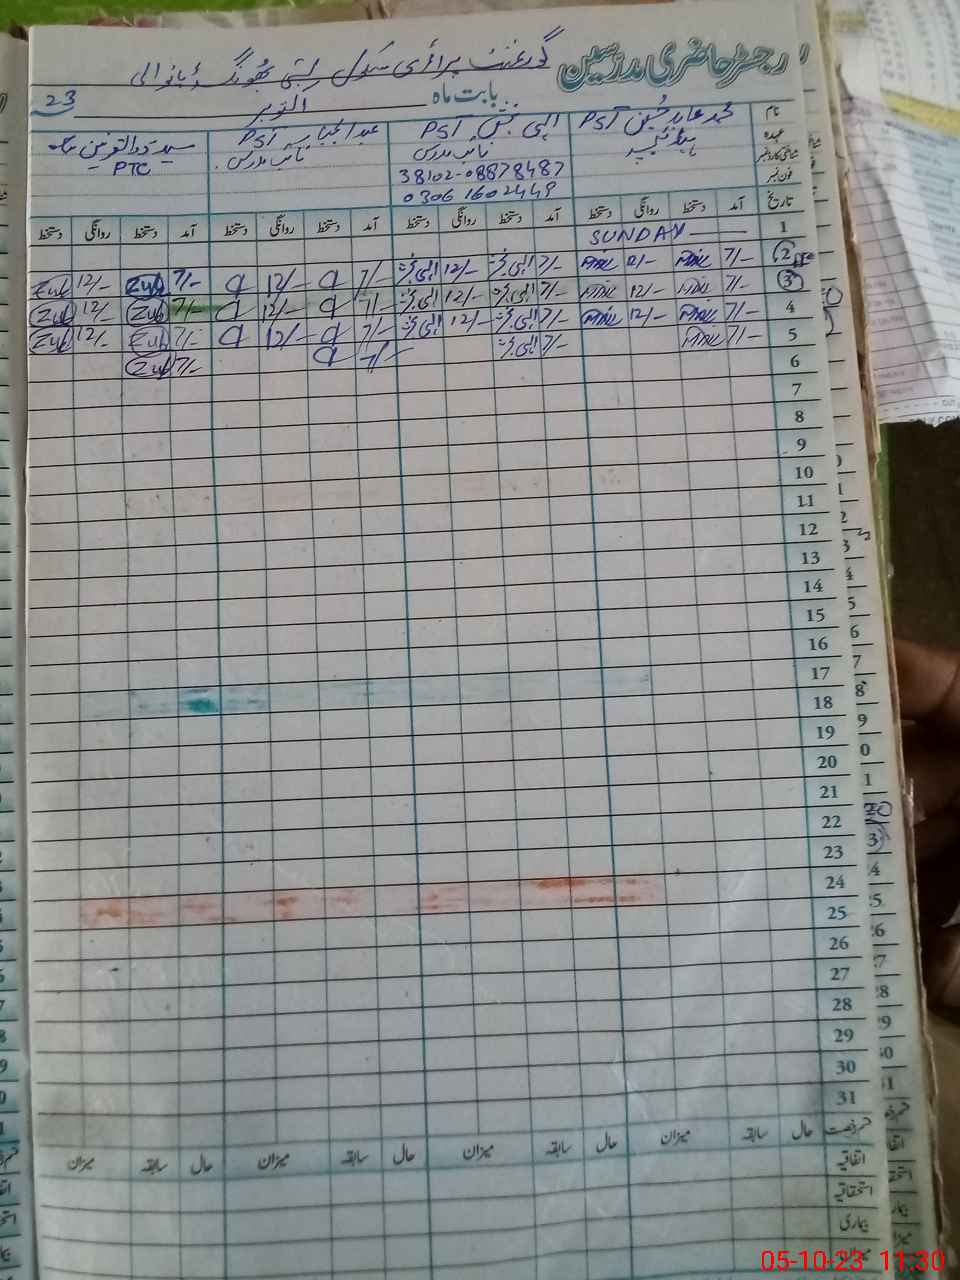 رجسٹر حاضری مدرسین
گورنمنٹ پرائمری سکول بستی
بابت ماہ اکتوبر 23
نام محمد عابد حسین PST الہی بخش PST عبدالجبار PST سید ذوالقرنین
عہدہ نائب مدرس نائب مدرس PTC
شناختی کارڈ نمبر 38102-08878487
فون نمبر 0306 1602449
تاریخ آمد دستخط روانگی دستخط آمد دستخط روانگی دستخط آمد دستخط روانگی دستخط آمد دستخط روانگی دستخط
1 SUNDAY
2 7/- 12/- 7/- الہی بخش 12/- الہی بخش 7/- 12/- 7/- Zul 12/- Zul
3 7/- 12/- 7/- الہی بخش 12/- الہی بخش 7/- 12/- 7/- Zul 12/- Zul
4 7/- 12/- 7/- الہی بخش 12/- الہی بخش 7/- 12/- 7/- Zul 12/- Zul
5 7/- 7/- الہی بخش 7/- 7/- Zul
6
7
8
9
10
11
12
13
14
15
16
17
18
19
20
21
22
23
24
25
26
27
28
29
30
31
قسم رخصت حال سابقہ میزان حال سابقہ میزان حال سابقہ میزان حال سابقہ میزان
اتفاقیہ
استحقاقیہ
بیماری
میزان
05-10-23 11:30